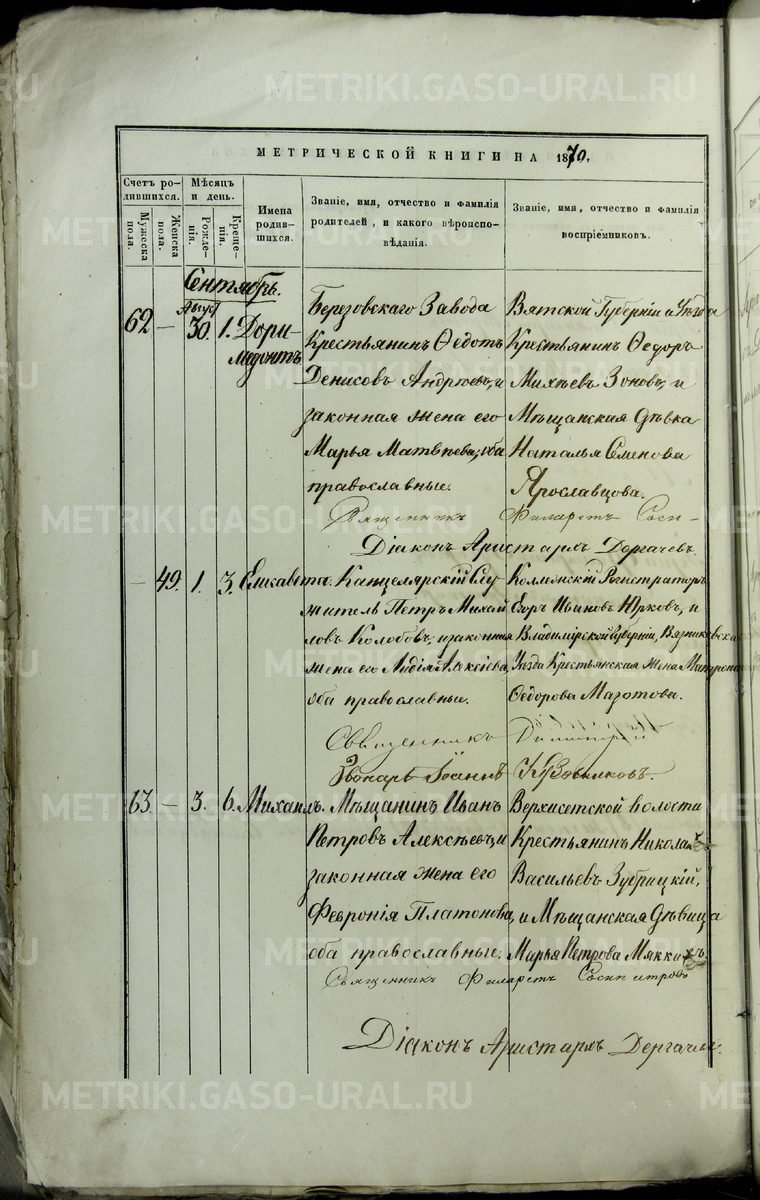 METRIKI.GASO-URAL.RU
МЕТРИЧЕСКОЙ КНИГИ НА 1870,
Счетъ ро-
дившихся.
Мужеска
пола.
Женска
пола.
Мѣсяцъ
и день.
Рожде-
нія.
Креще-
нія.
Имена
родив-
шихся.
Званіе, имя, отчество и фамилія
родителей, и какого вѣроиспо-
вѣданія.
Званіе, имя, отчество и фамилія
воспріемниковъ.
Сентябрь.
62 — Август 30. 1. Дори-
медонтъ
Березовскаго Завода
Крестьянинъ Ѳедотъ
Денисовъ Андреевъ, и
законная жена его
Марья Матвѣева, оба
православные.
Вятской Губерніи и Уѣзда
Крестьянинъ Ѳедоръ
Михѣевъ Зоновъ, и
Мѣщанская дѣвка
Наталья Семенова
Ярославцова.
Священникъ Филаретъ
Діаконъ Аристархъ Дергачевъ.
— 49. 1. 3. Елисавета.
Канцелярскій Слу-
житель Петръ Михай
ловъ Колобовъ, и законная
жена его Лидія Алексѣева,
оба православные.
Коллежскій Регистраторъ
Егоръ Ивановъ Юрковъ, и
Владимірской Губерніи, Вязниковска
Уѣзда Крестьянская жена Матрена
Ѳедорова Мазотова.
Священникъ Димитрій
Іоаннъ
63. — 3. 6. Михаилъ.
Мѣщанинъ Иванъ
Петровъ Алексѣевъ, и
законная жена его
Февронія Платонова,
оба православные.
Верхисетской волости
Крестьянинъ Николай
Васильевъ Зубрицкій,
и Мѣщанская дѣвица
Марья Петрова Мяккихъ.
Священникъ Филаретъ
Діаконъ Аристархъ Дергачев